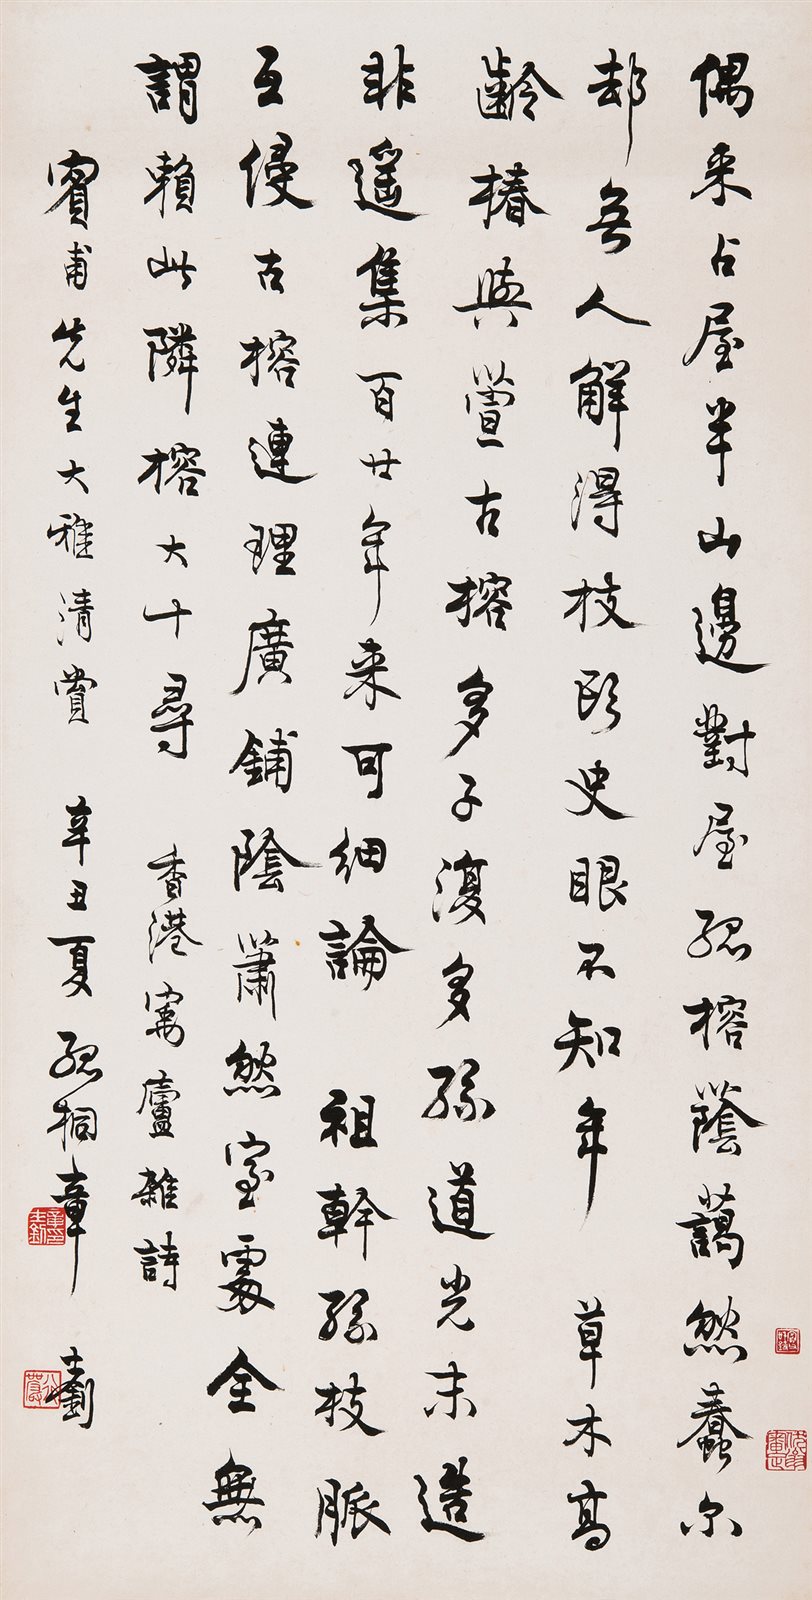 偶来占屋半山邊對屋孤榕蔭藹然蠢尔
却無人解得枝頭史眼不知年 草木高
齡椿與萱古榕多子復多孫道光末造
非遥集百廿年来可細論 祖幹孫枝脈
互侵古榕連理廣鋪陰蕭然室處全無
謂賴此隣榕大十尋 香港寓廬雜詩
賓甫先生大雅清賞 辛丑夏 孤桐章士釗